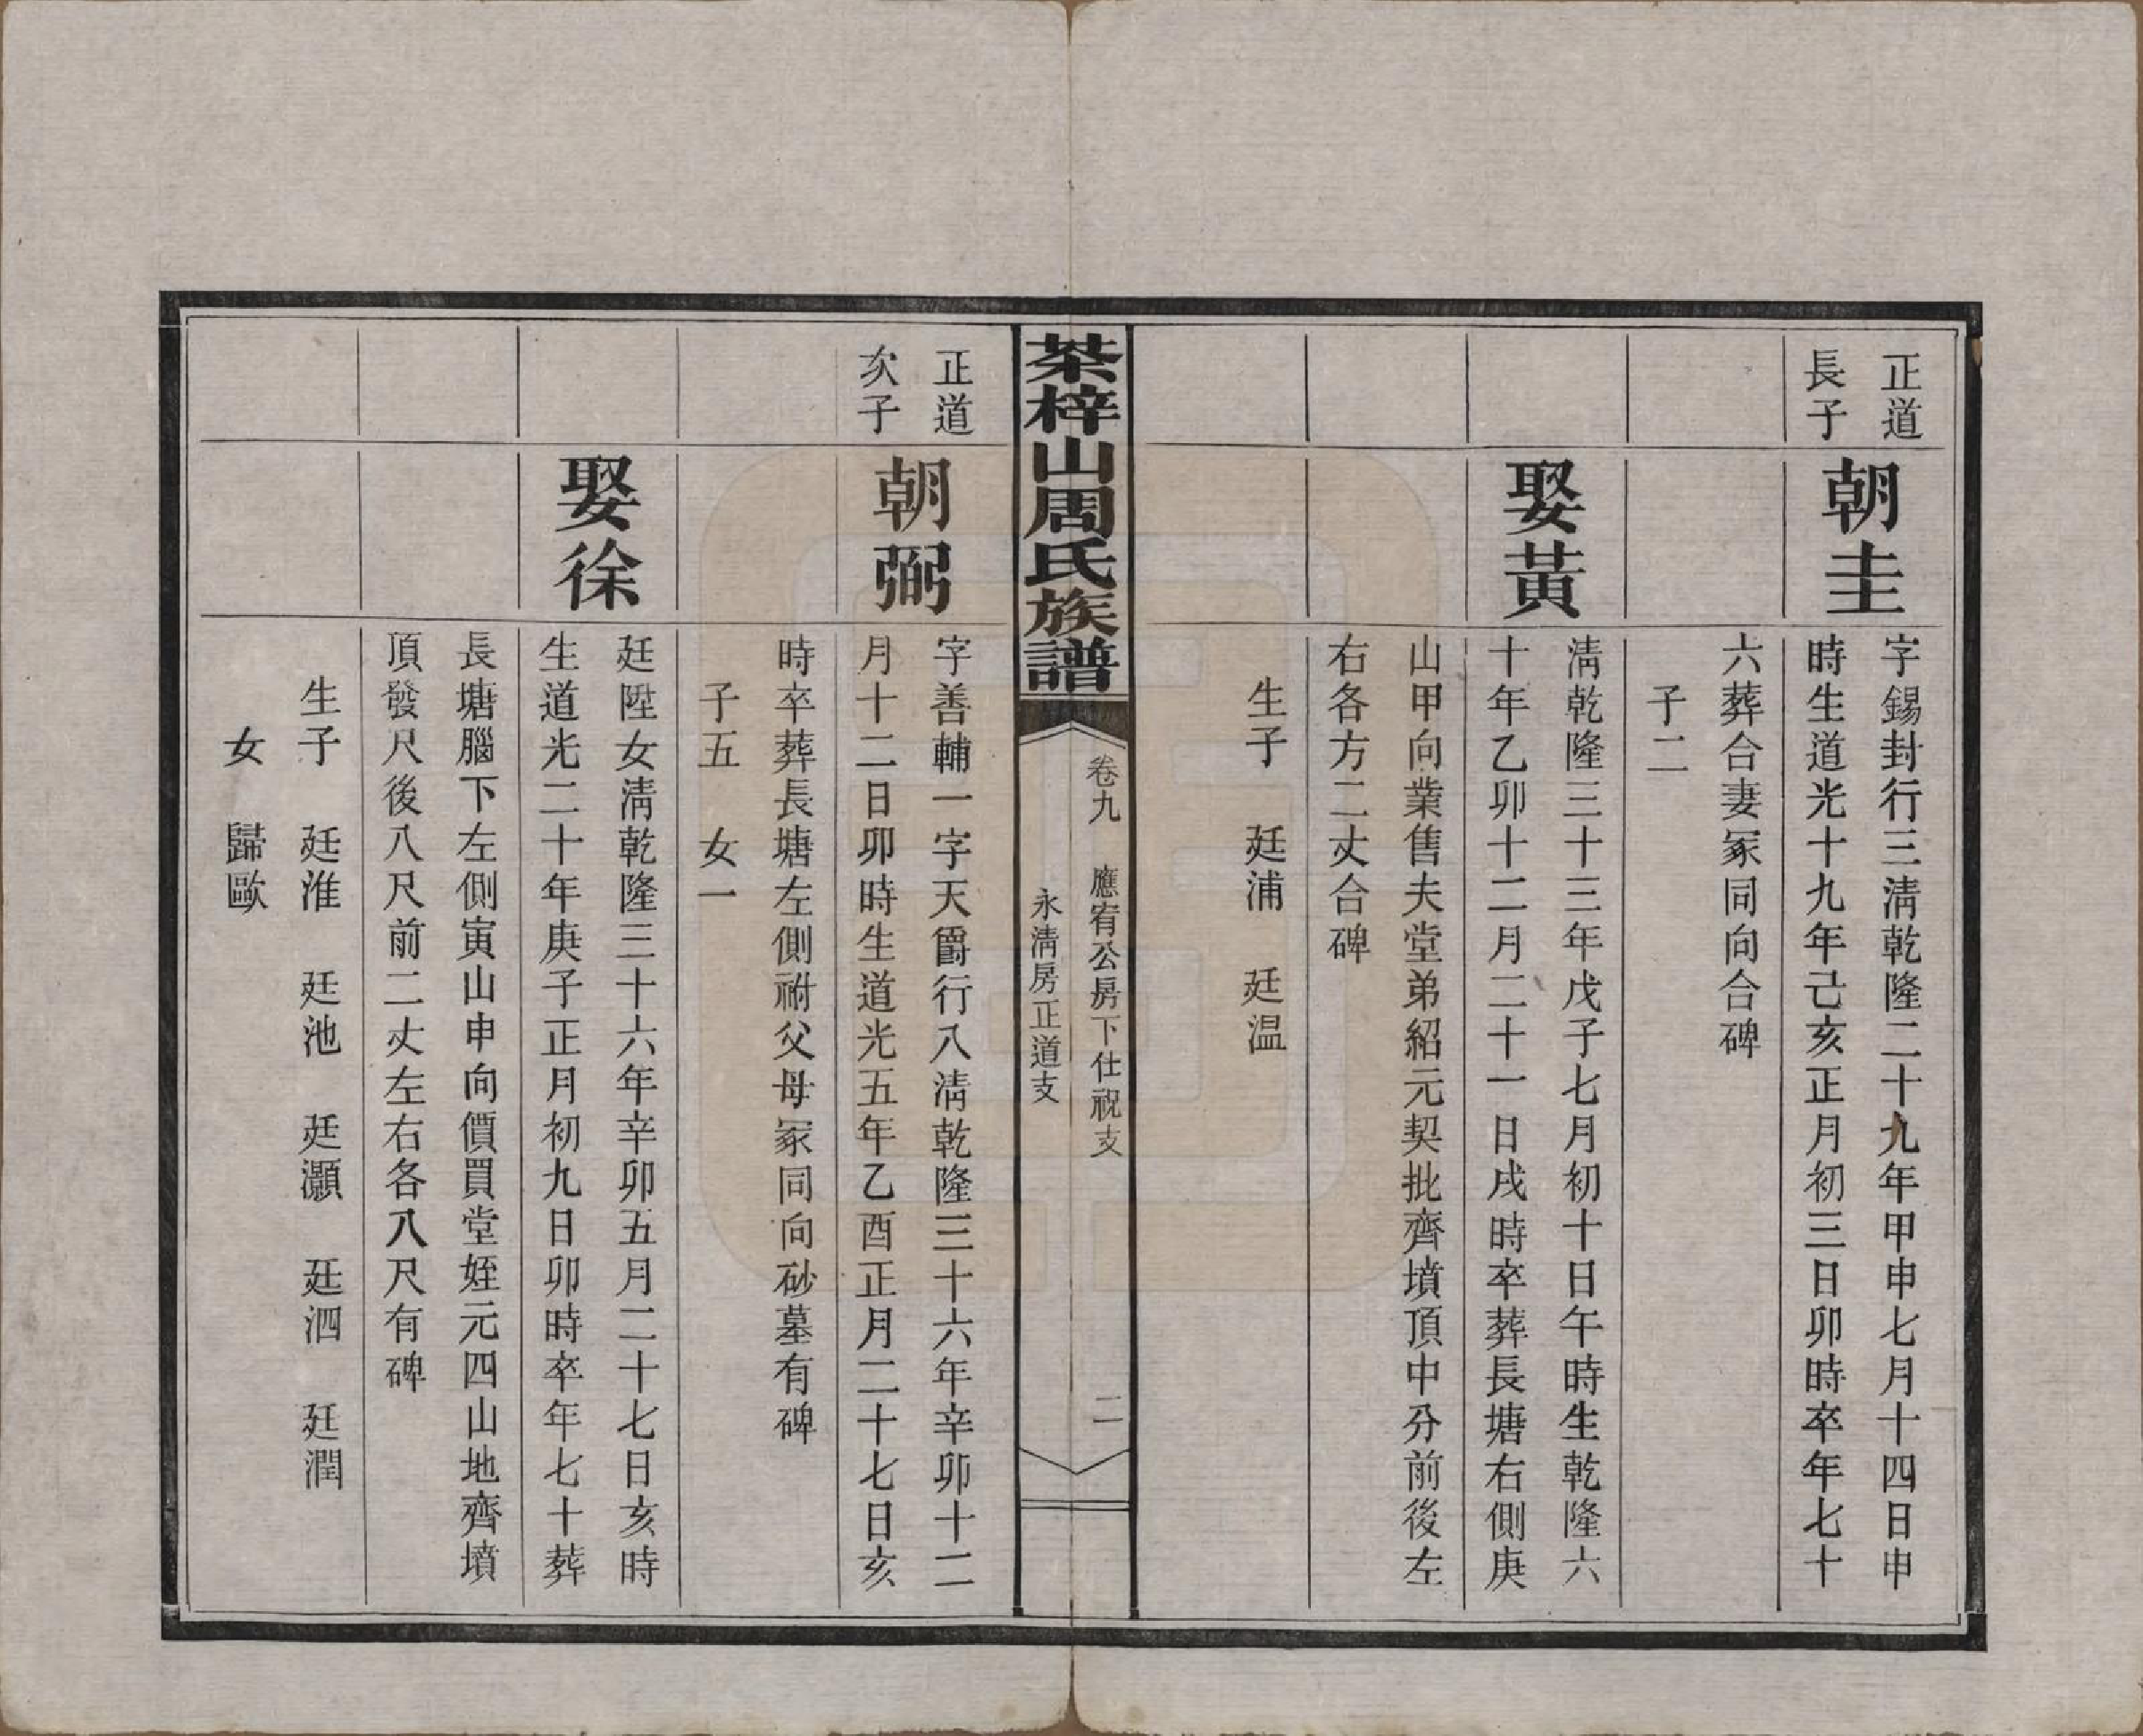 正道
長子
朝圭
字錫封行三淸乾隆二十九年甲申七月十四日申
時生道光十九年己亥正月初三日卯時卒年七十
六葬合妻冢同向合碑
子二
娶黃
淸乾隆三十三年戊子七月初十日午時生乾隆六
十年乙卯十二月二十一日戌時卒葬長塘右側庚
山甲向業售夫堂弟紹元契批齊墳頂中分前後左
右各方二丈合碑
生子　廷浦　廷温
茶梓山周氏族譜
卷九　應宥公房下仕祝支
永淸房正道支
二
正道
次子
朝弼
字善輔一字天爵行八淸乾隆三十六年辛卯十二
月十二日卯時生道光五年乙酉正月二十七日亥
時卒葬長塘左側祔父母冢同向砂墓有碑
子五　女一
娶徐
廷陞女淸乾隆三十六年辛卯五月二十七日亥時
生道光二十年庚子正月初九日卯時卒年七十葬
長塘腦下左側寅山申向價買堂姪元四山地齊墳
頂發尺後八尺前二丈左右各八尺有碑
生子　廷淮　廷池　廷灝　廷泗　廷潤
女　歸歐